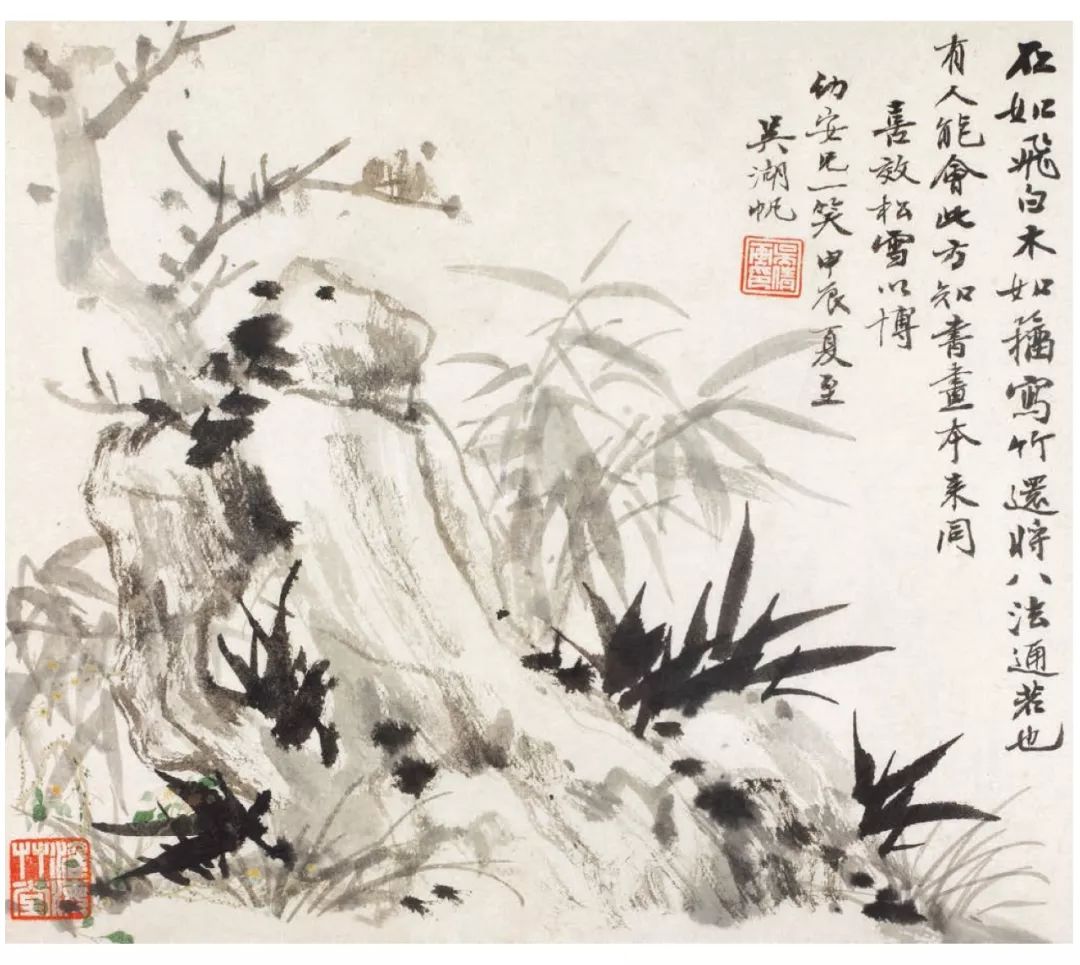 石如飛白木如籀寫竹還將八法通若也
有人能會此方知書畫本來同
喜效松雪以博
幼安兄一笑甲辰夏至
吳湖帆